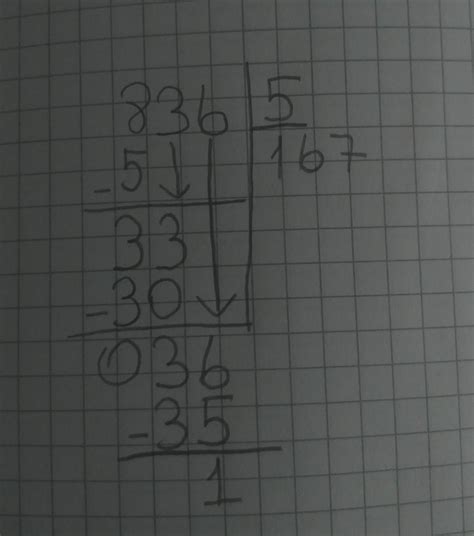 836 5
-5 167
33
-30
036
-35
1